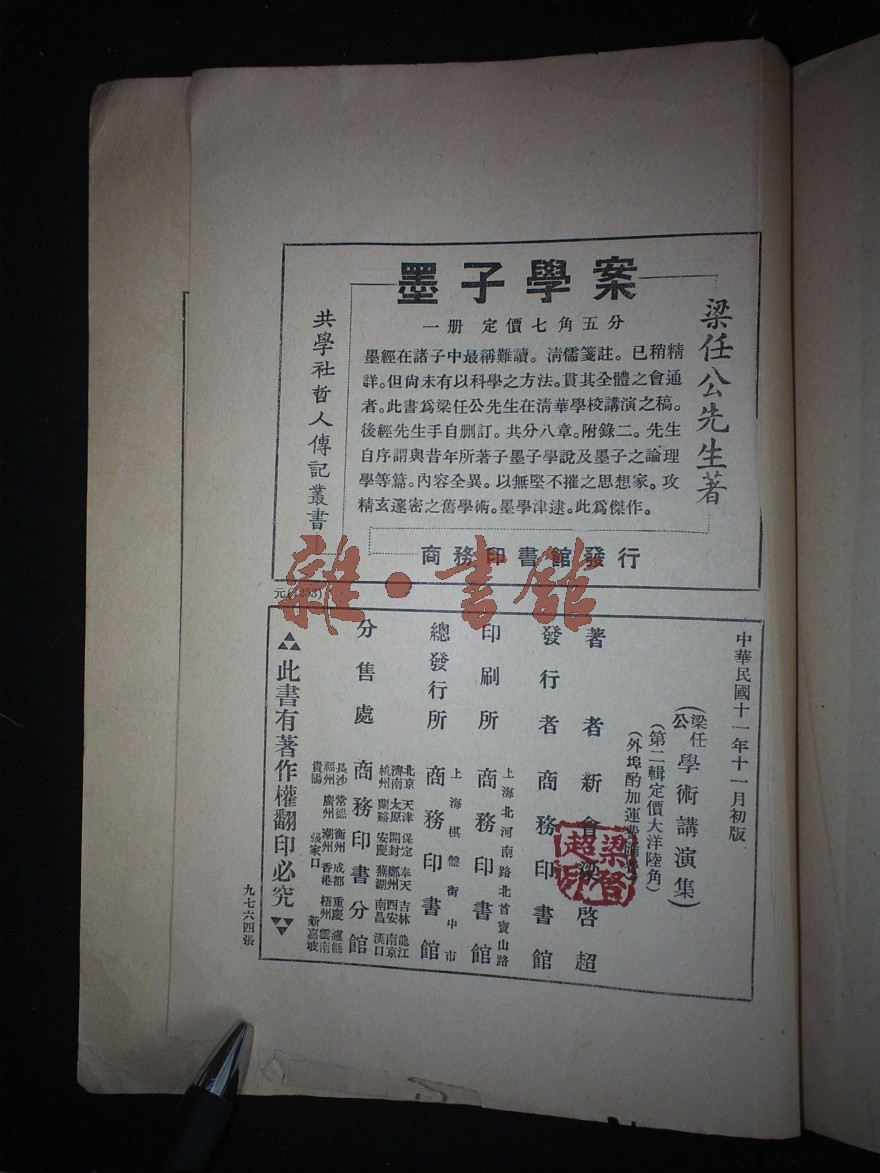 墨子學案
一册 定價七角五分
梁任公先生著
墨經在諸子中最稱難讀。清儒箋註。已稍精
詳。但尚未有以科學之方法。貫其全體之會通
者。此書爲梁任公先生在清華學校講演之稿。
後經先生手自删訂。共分八章。附錄二。先生
自序謂與昔年所著子墨子學說及墨子之論理
學等篇。內容全異。以無堅不摧之思想家。攻
精玄邃密之舊學術。墨學津逮。此爲傑作。
共學社哲人傳記叢書
商務印書館發行
雜·書館
元(1253)
中華民國十一年十一月初版
(梁任公學術講演集)
(第二輯定價大洋陸角)
(外埠酌加運費匯費)
著者新會梁啓超
梁啓超印
發行者商務印書館
上海北河南路北首寶山路
印刷所商務印書館
上海棋盤街中市
總發行所商務印書館
分售處商務印書分館
北京 天津 保定 奉天 吉林 龍江
濟南 太原 開封 鄭州 西安 南京
杭州 蘭谿 安慶 蕪湖 南昌 漢口
長沙 常德 衡州 成都 重慶 瀘縣
福州 廣州 潮州 香港 梧州 雲南
貴陽 張家口 新嘉坡
此書有著作權翻印必究
九七六四張